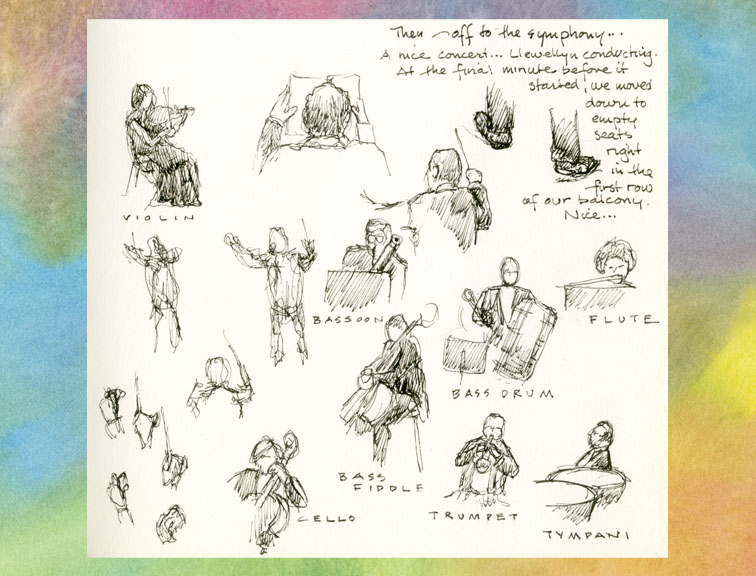 Then ~ off to the symphony...
A nice concert... Llewellyn conducting.
At the final minute before it
started, we moved
down to
empty
seats
right
in the
first row
of our balcony.
Nice...
VIOLIN
BASSOON
FLUTE
BASS DRUM
BASS
FIDDLE
CELLO
TRUMPET
TYMPANI